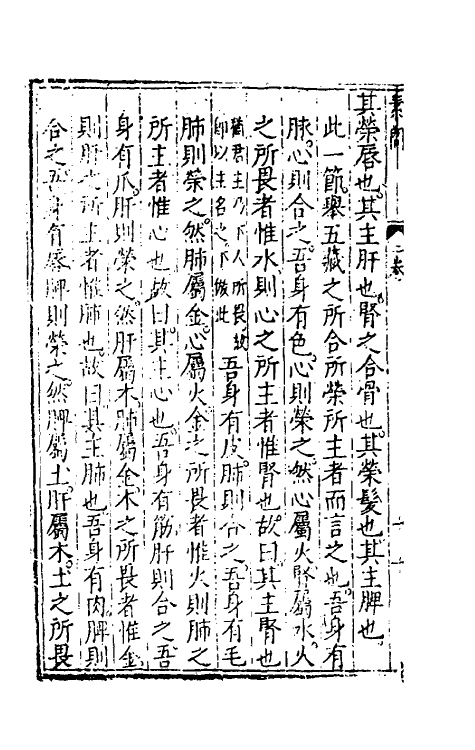 素問 二卷
其榮唇也其主肝也腎之合骨也其榮髮也其主脾也
此一節舉五藏之所合所榮所主者而言之也吾身有
脉心則合之吾身有色心則榮之然心屬火腎屬水火
之所畏者惟水則心之所主者惟腎也故曰其主腎也
猶君主乃下人所畏故
即以主名之下倣此
吾身有皮肺則合之吾身有毛
肺則榮之然肺屬金心屬火金之所畏者惟火則肺之
所主者惟心也故曰其主心也吾身有筋肝則合之吾
身有爪肝則榮之然肝屬木肺屬金木之所畏者惟金
則肝之所主者惟肺也故曰其主肺也吾身有肉脾則
合之吾身有唇脾則榮之然脾屬土肝屬木土之所畏